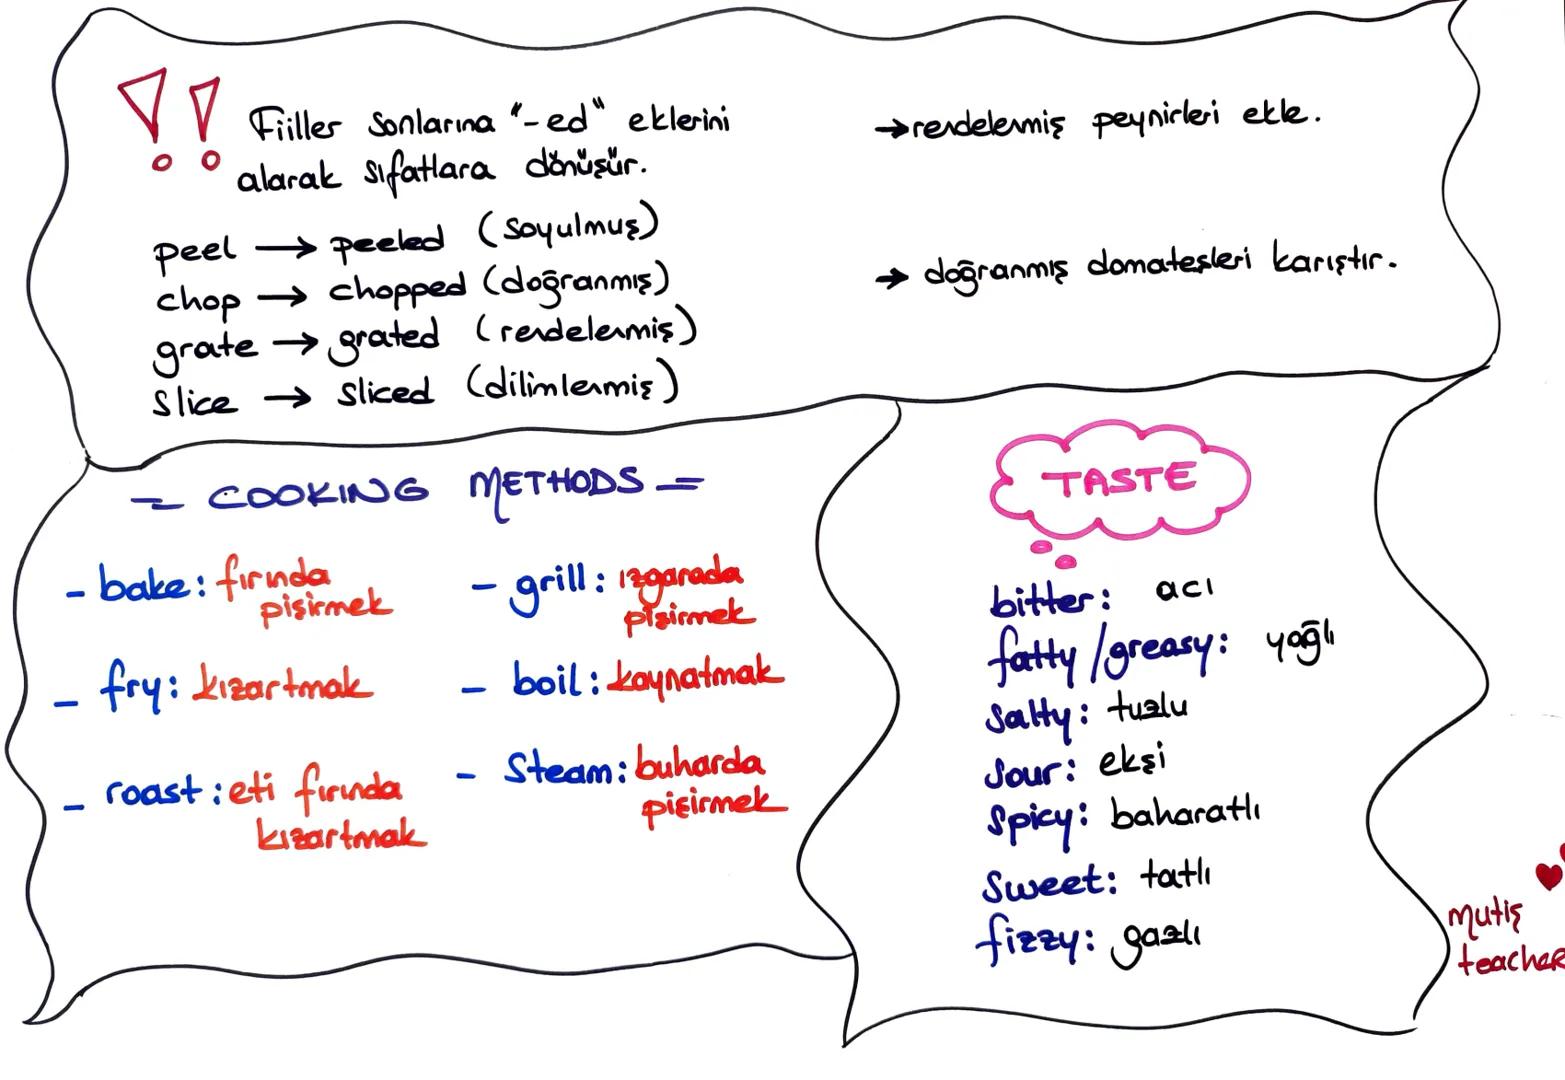 !! Fiiller sonlarına "-ed" eklerini
alarak sıfatlara dönüşür.
peel → peeled (soyulmuş)
chop → chopped (doğranmış)
grate → grated (rendelenmiş)
slice → sliced (dilimlenmiş)
→ rendelenmiş peynirleri ekle.
→ doğranmış domatesleri karıştır.
= COOKING METHODS =
- bake: fırında
pişirmek
- fry: kızartmak
- roast: eti fırında
kızartmak
- grill: ızgarada
pişirmek
- boil: kaynatmak
- Steam: buharda
pişirmek
TASTE
bitter: acı
fatty/greasy: yağlı
Salty: tuzlu
Sour: ekşi
Spicy: baharatlı
Sweet: tatlı
fizzy: gazlı
Mutiş
teacher